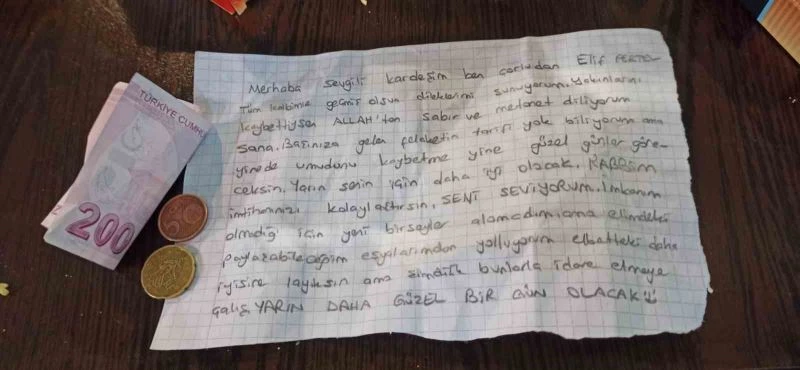 TÜRKİYE CUMHU
200
Merhaba sevgili kardeşim ben çorludan Elif
Tüm kalbimle geçmiş olsun dileklerimi sunuyorum. Yakınlarını
kaybettiysen ALLAH'tan sabır ve metanet diliyorum
sana. Başınıza gelen felaketin tarifi yok biliyorum ama
yinede umudunu kaybetme yine güzel günler göre-
ceksin. Yarın senin için daha iyi olacak. RABBİM
imtihanınızı kolaylaştırsın. SENİ SEVİYORUM. İmkanım
olmadığı için yeni birşeyler alamadım, ama elimdeki
paylaşabileceğim eşyalarımdan yolluyorum elbetteki daha
iyisine layıksın ama şimdilik bunlarla idare etmeye
çalış. YARIN DAHA GÜZEL BİR GÜN OLACAK